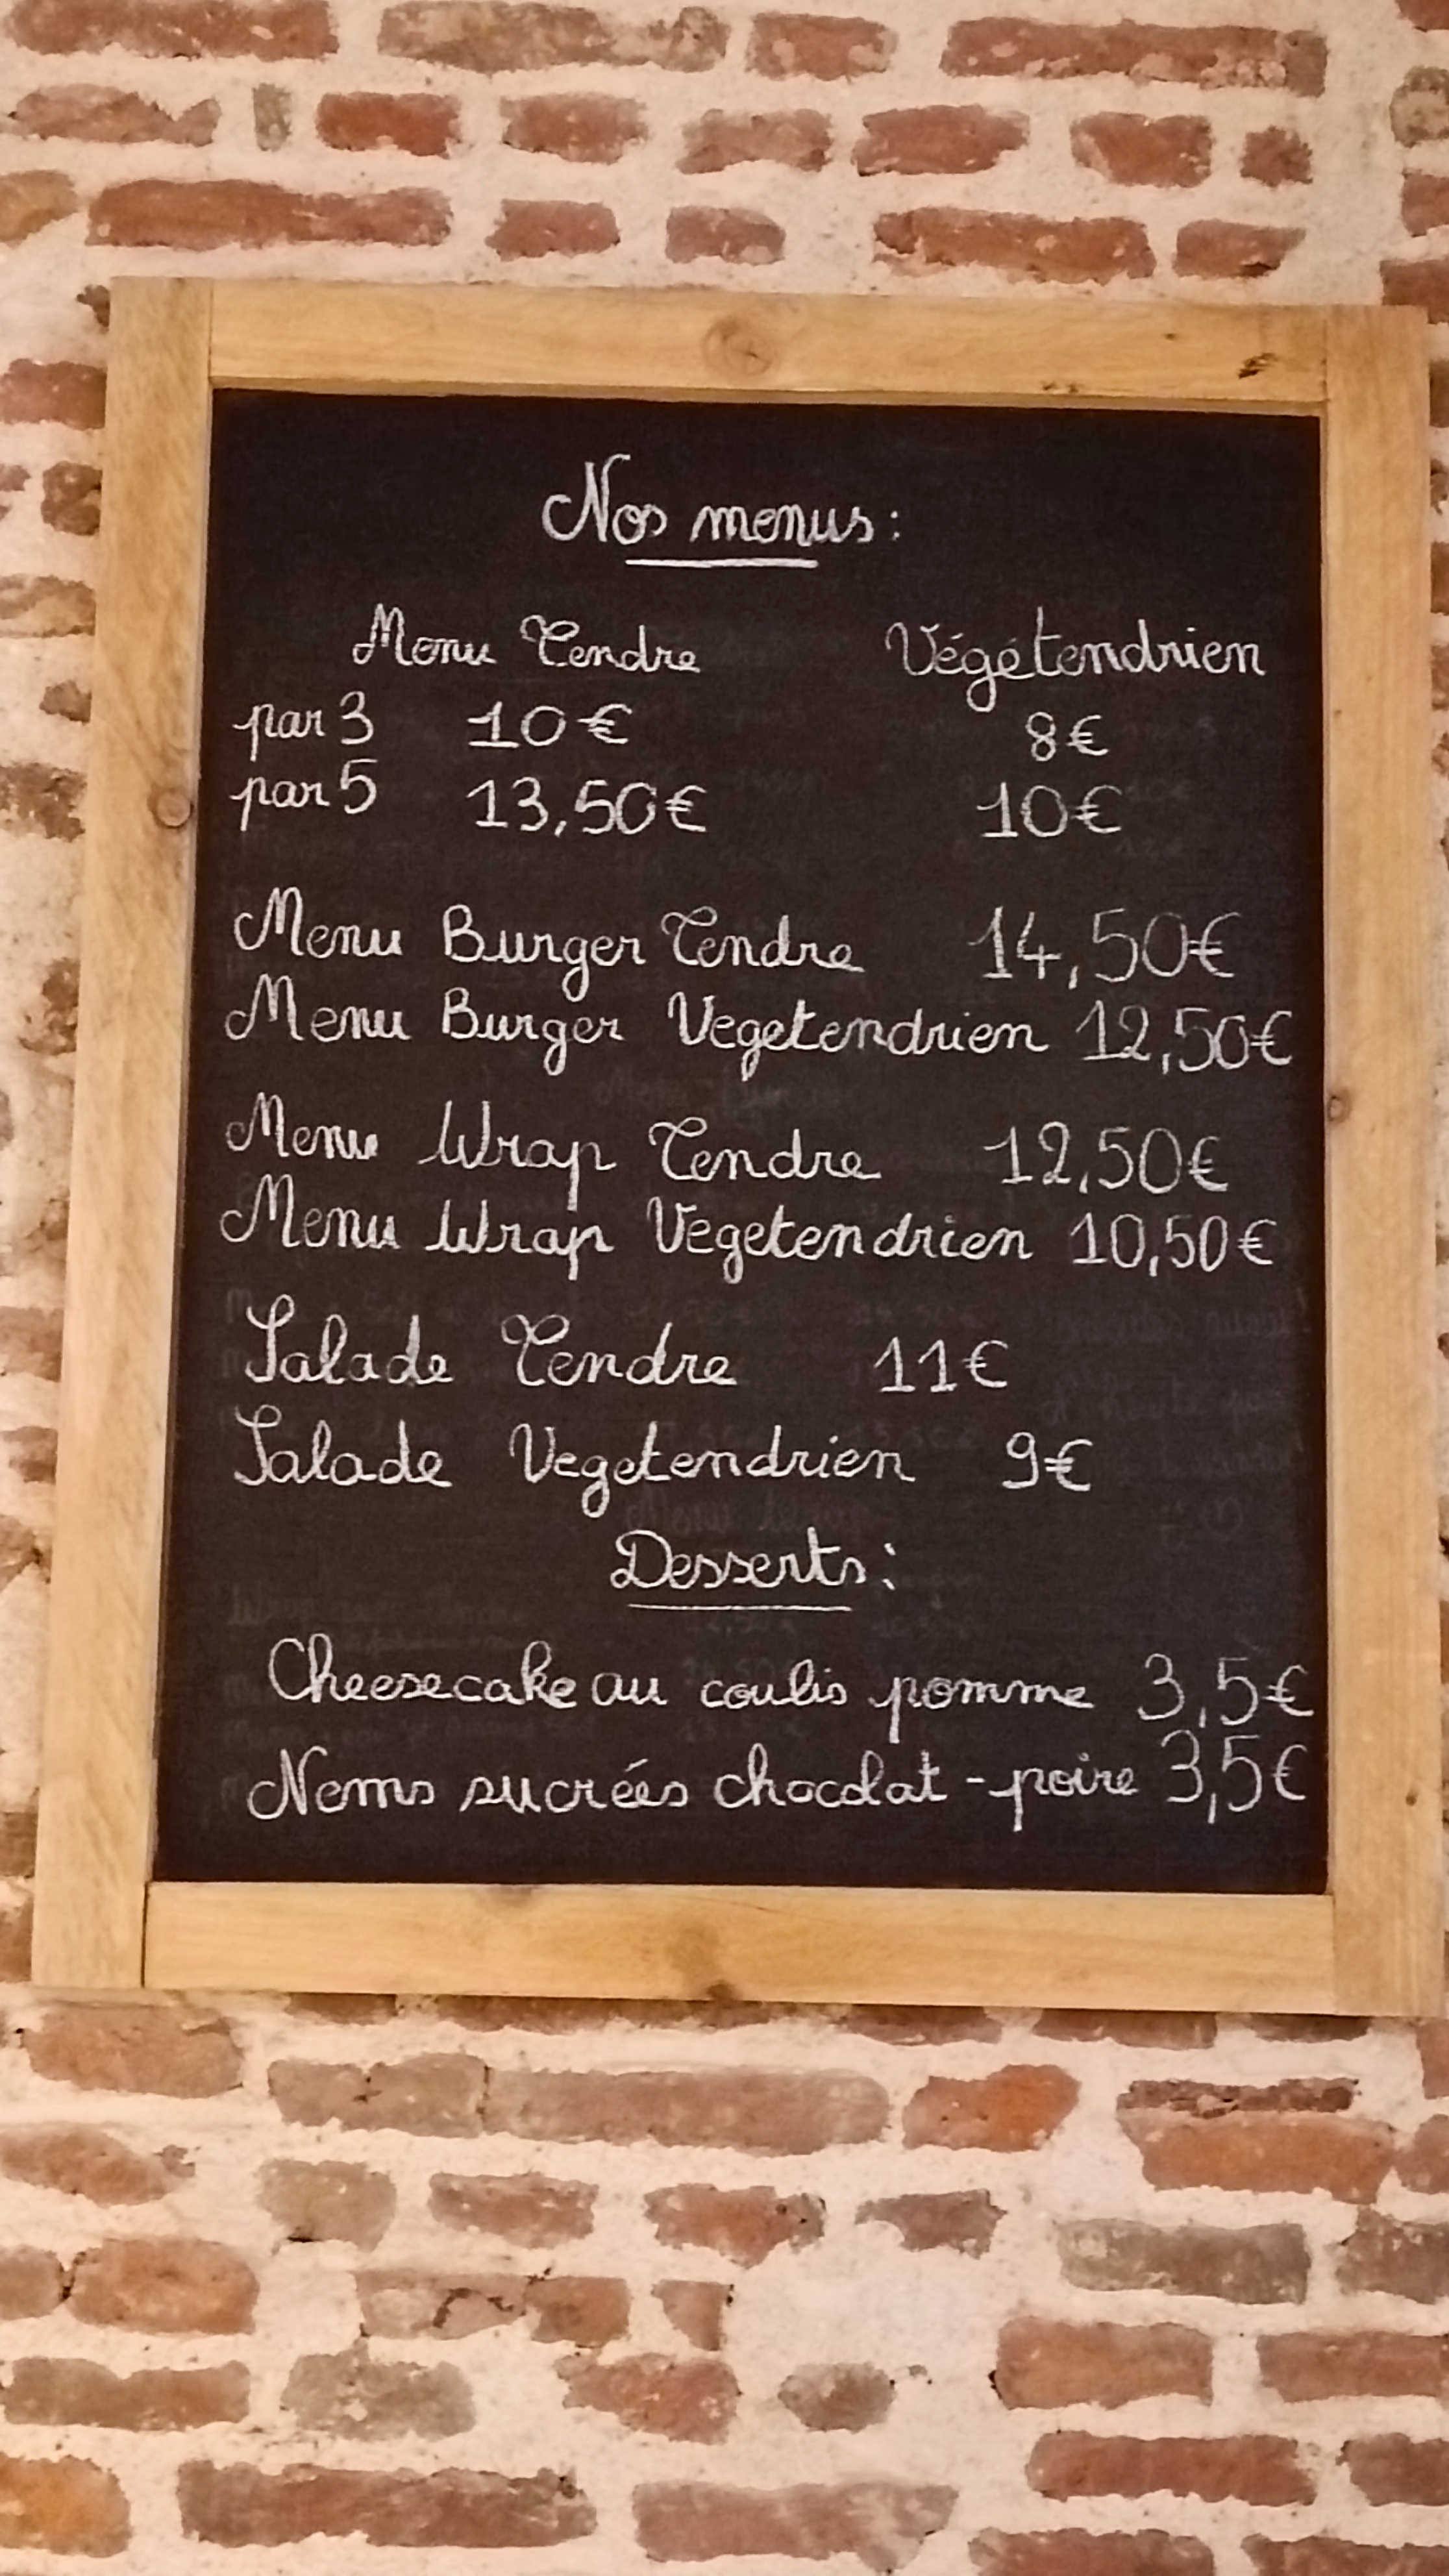 Nos menus :
Menu Tendre Végétendrien
par 3 10€ 8€
par 5 13,50€ 10€
Menu Burger Tendre 14,50€
Menu Burger Vegetendrien 12,50€
Menu Wrap Tendre 12,50€
Menu Wrap Vegetendrien 10,50€
Salade Tendre 11€
Salade Vegetendrien 9€
Desserts :
Cheesecake au coulis pomme 3,5€
Nems sucrées chocolat - poire 3,5€